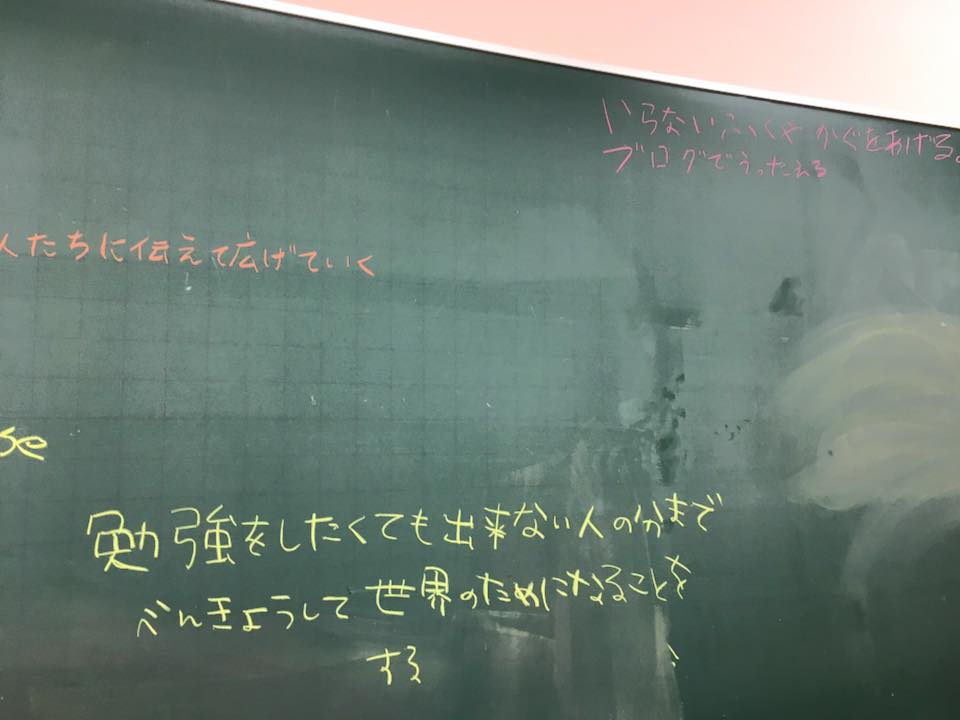 いらないふくやかぐをあげる。
ブログでうったえる
人たちに伝えて広げていく
se
勉強をしたくても出来ない人の分まで
べんきょうして世界のためになることを
する